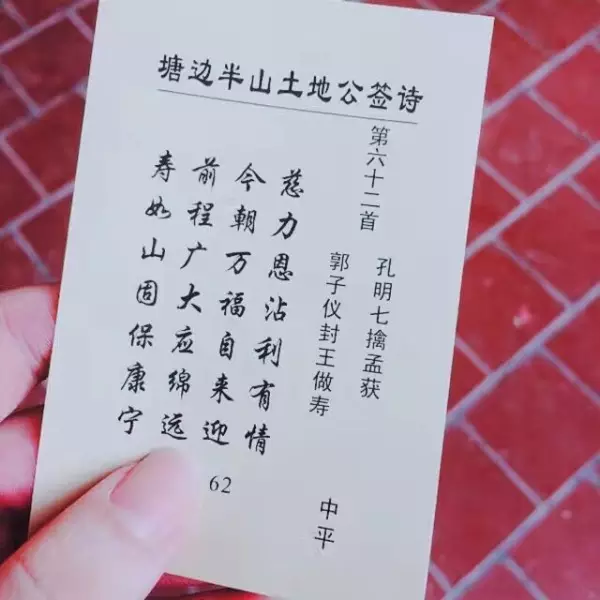 塘边半山土地公签诗
第六十二首
孔明七擒孟获
郭子仪封王做寿
中平
慈力恩沾利有情
今朝万福自来迎
前程广大应绵远
寿如山固保康宁
62